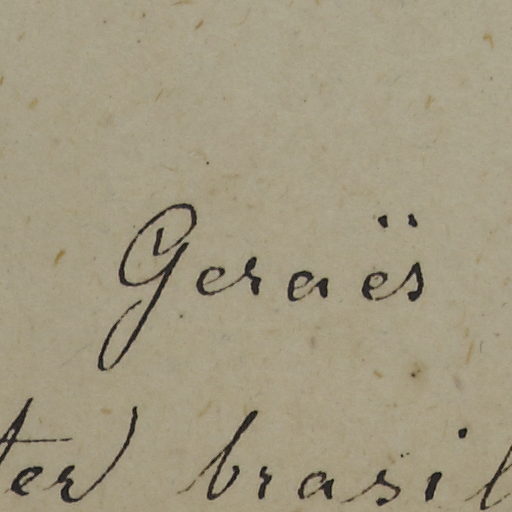 Geraës
ter) brasil